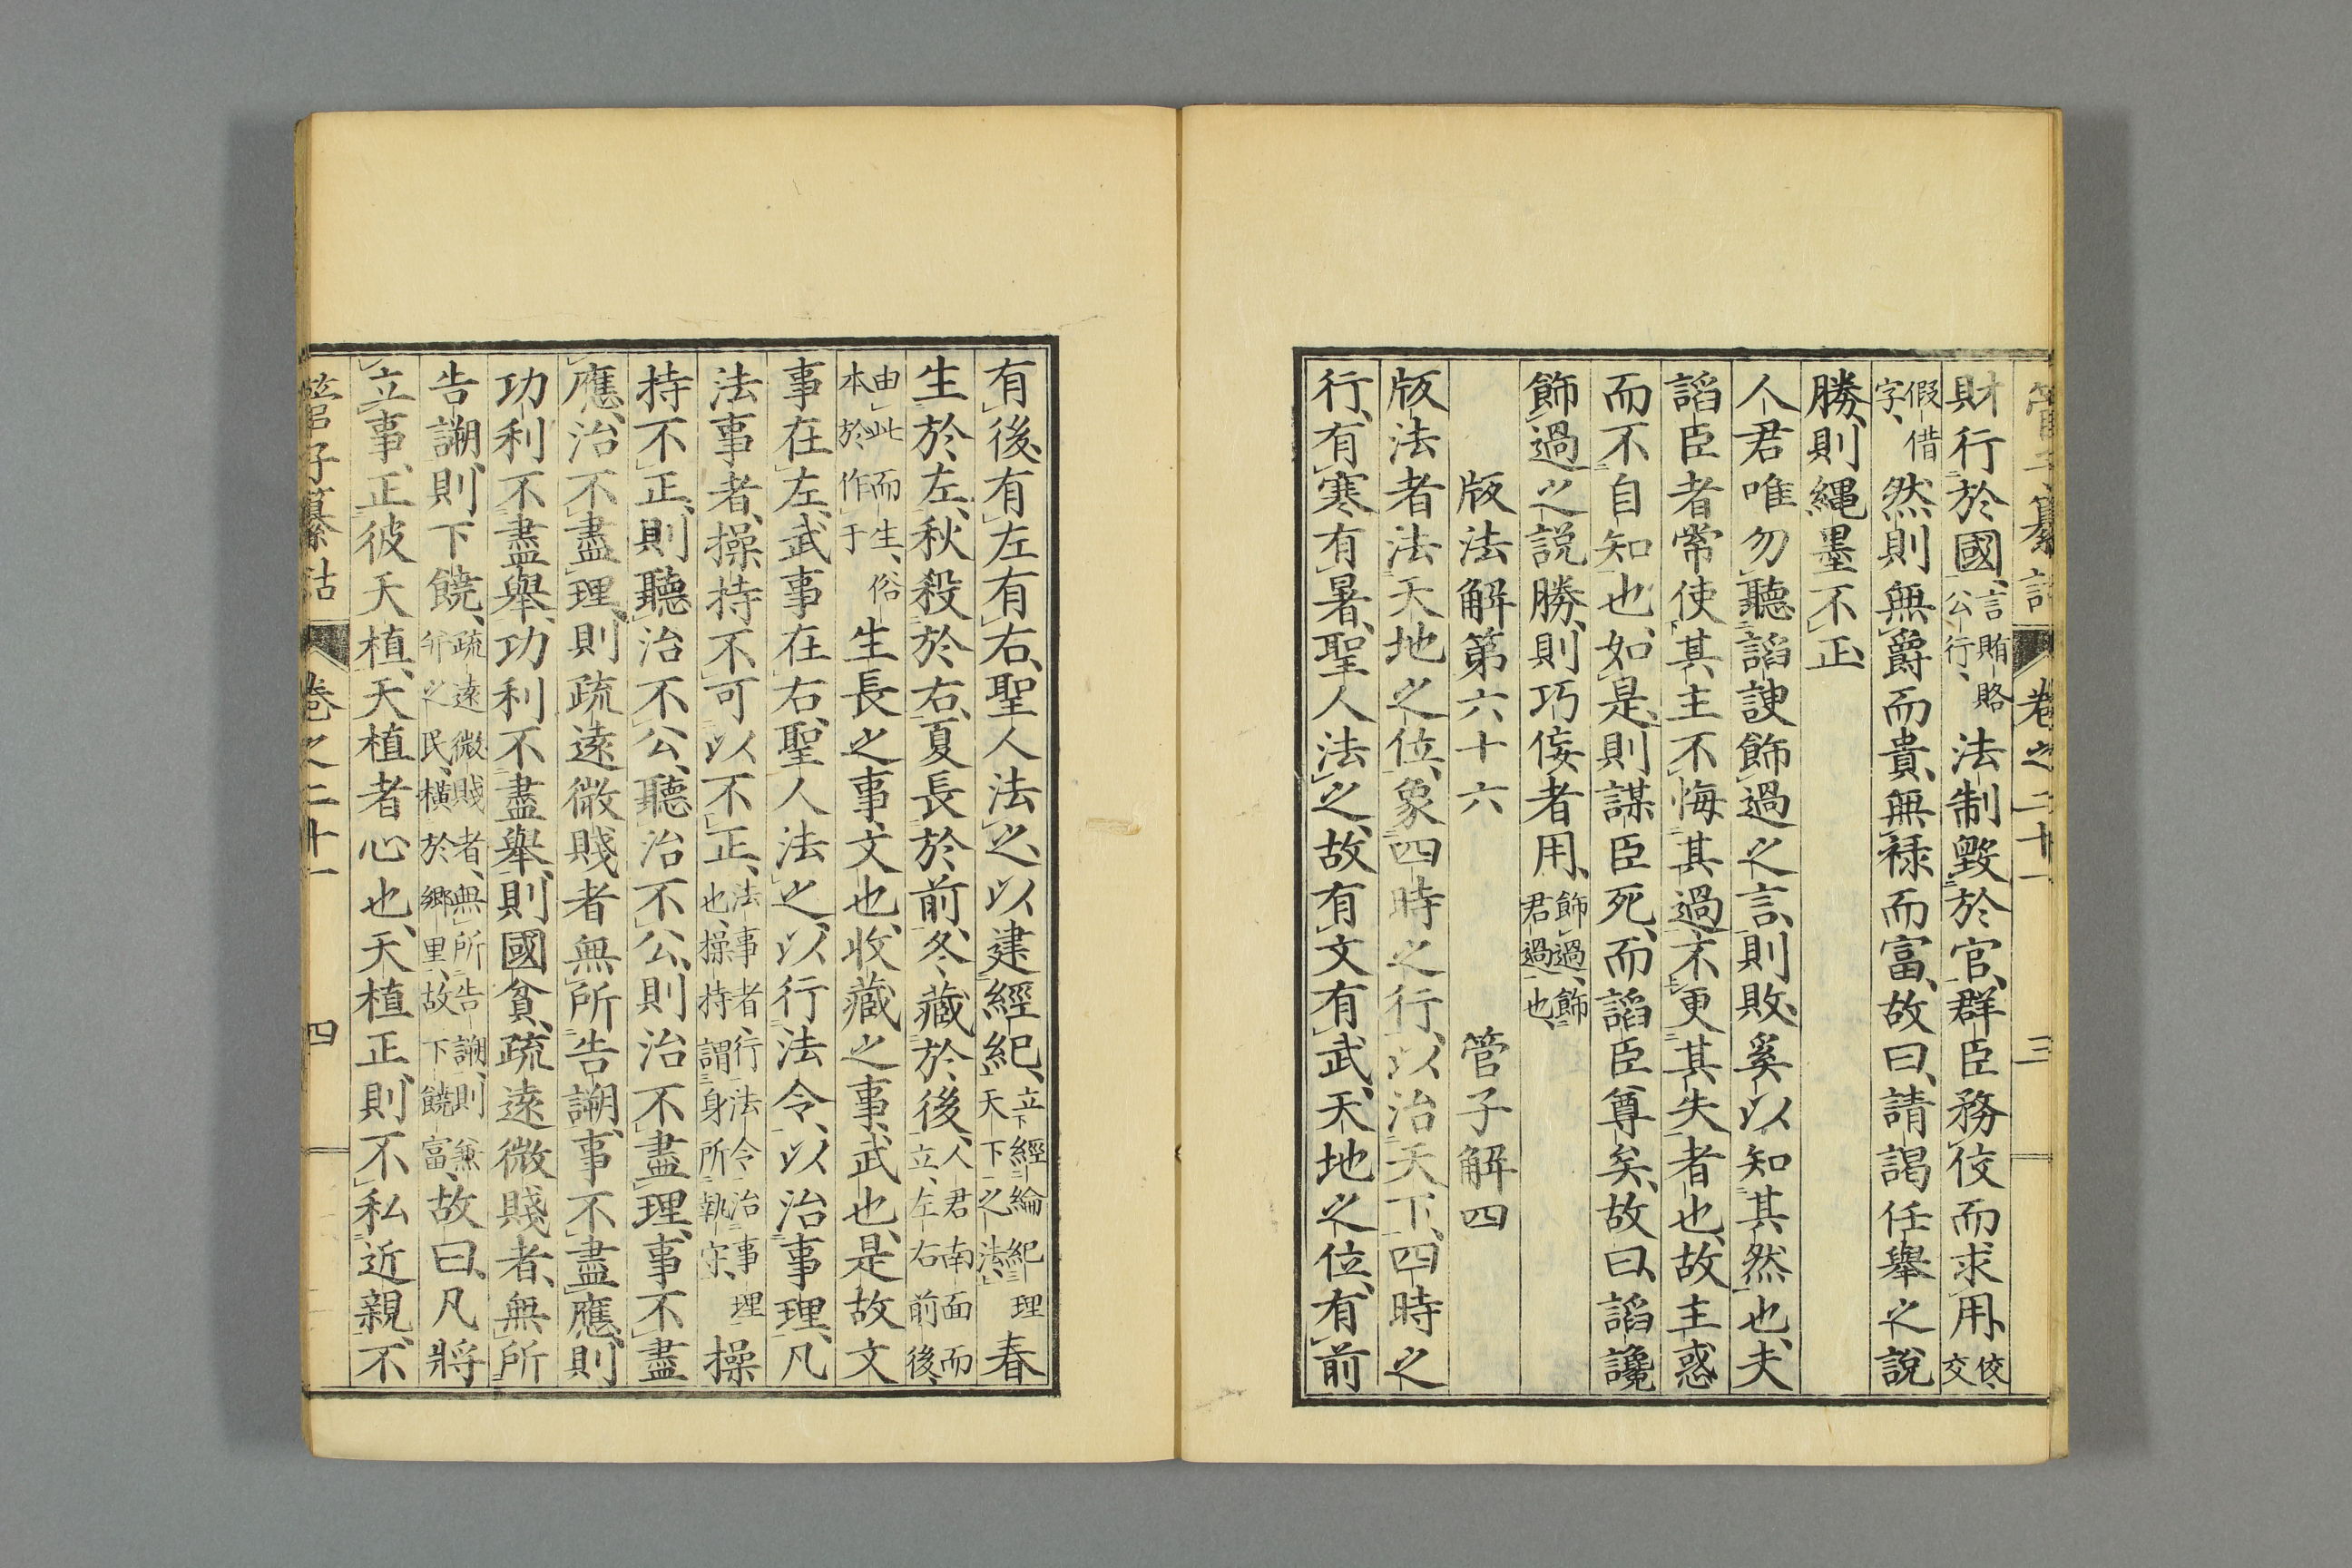 管子纂詁 卷之二十一 三
財行於國、言賄賂公行、法制毀於官、群臣務佼而求用、佼交
假借字、然則無爵而貴、無祿而富、故曰、請謁任舉之說
勝、則繩墨不正、
人君唯勿聽諂諛飾過之言、則敗、奚以知其然也、夫
諂臣者常使其主不悔其過、不更其失者也、故主惑
而不自知也、如是、則謀臣死、而諂臣尊矣、故曰、諂讒
飾過之說勝、則巧佞者用、飾過、飾君過也、
版法解第六十六 管子解四
版法者法天地之位、象四時之行、以治天下、四時之
行、有寒有暑、聖人法之、故有文有武、天地之位、有前
有後、有左有右、聖人法之、以建經紀、立下經綸紀理天下之法、春
生於左、秋殺於右、夏長於前、冬藏於後、人君南面而立、左右前後、
由此而生、俗本於作于生長之事、文也、收藏之事、武也、是故文
事在左、武事在右、聖人法之、以行法令、以治事理、凡
法事者、操持不可以不正、法事者、行法令治事理也、操持謂身所執守、操
持不正、則聽治不公、聽治不公、則治不盡理、事不盡
應、治不盡理、則疏遠微賤者無所告謝、事不盡應、則
功利不盡舉、功利不盡舉、則國貧、疏遠微賤者、無所
告謝、則下饒、疏遠微賤者、無所告謝、則兼并之民、橫於鄉里、故下饒富、故曰、凡將
立事、正彼天植、天植者心也、天植正、則不私近親、不
管子纂詁 卷之二十一 四